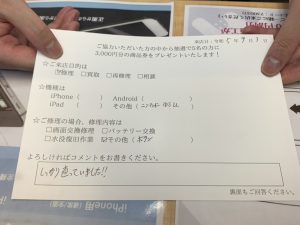 ご協力いただいた方の中から抽選で5名の方に
3,000円分の商品券をプレゼントいたします!
☆ご来店目的は
☑修理 □買取 □再修理 □相談
☆機種は
iPhone ( ) Android ( )
iPad ( ) その他 (
☆ご修理の場合、修理内容は
□画面交換修理 □バッテリー交換
□水没復旧作業 ☑その他 (ボタン )
よろしければコメントをお書きください。
しっかり直っていました!!
裏面もご回答ください。